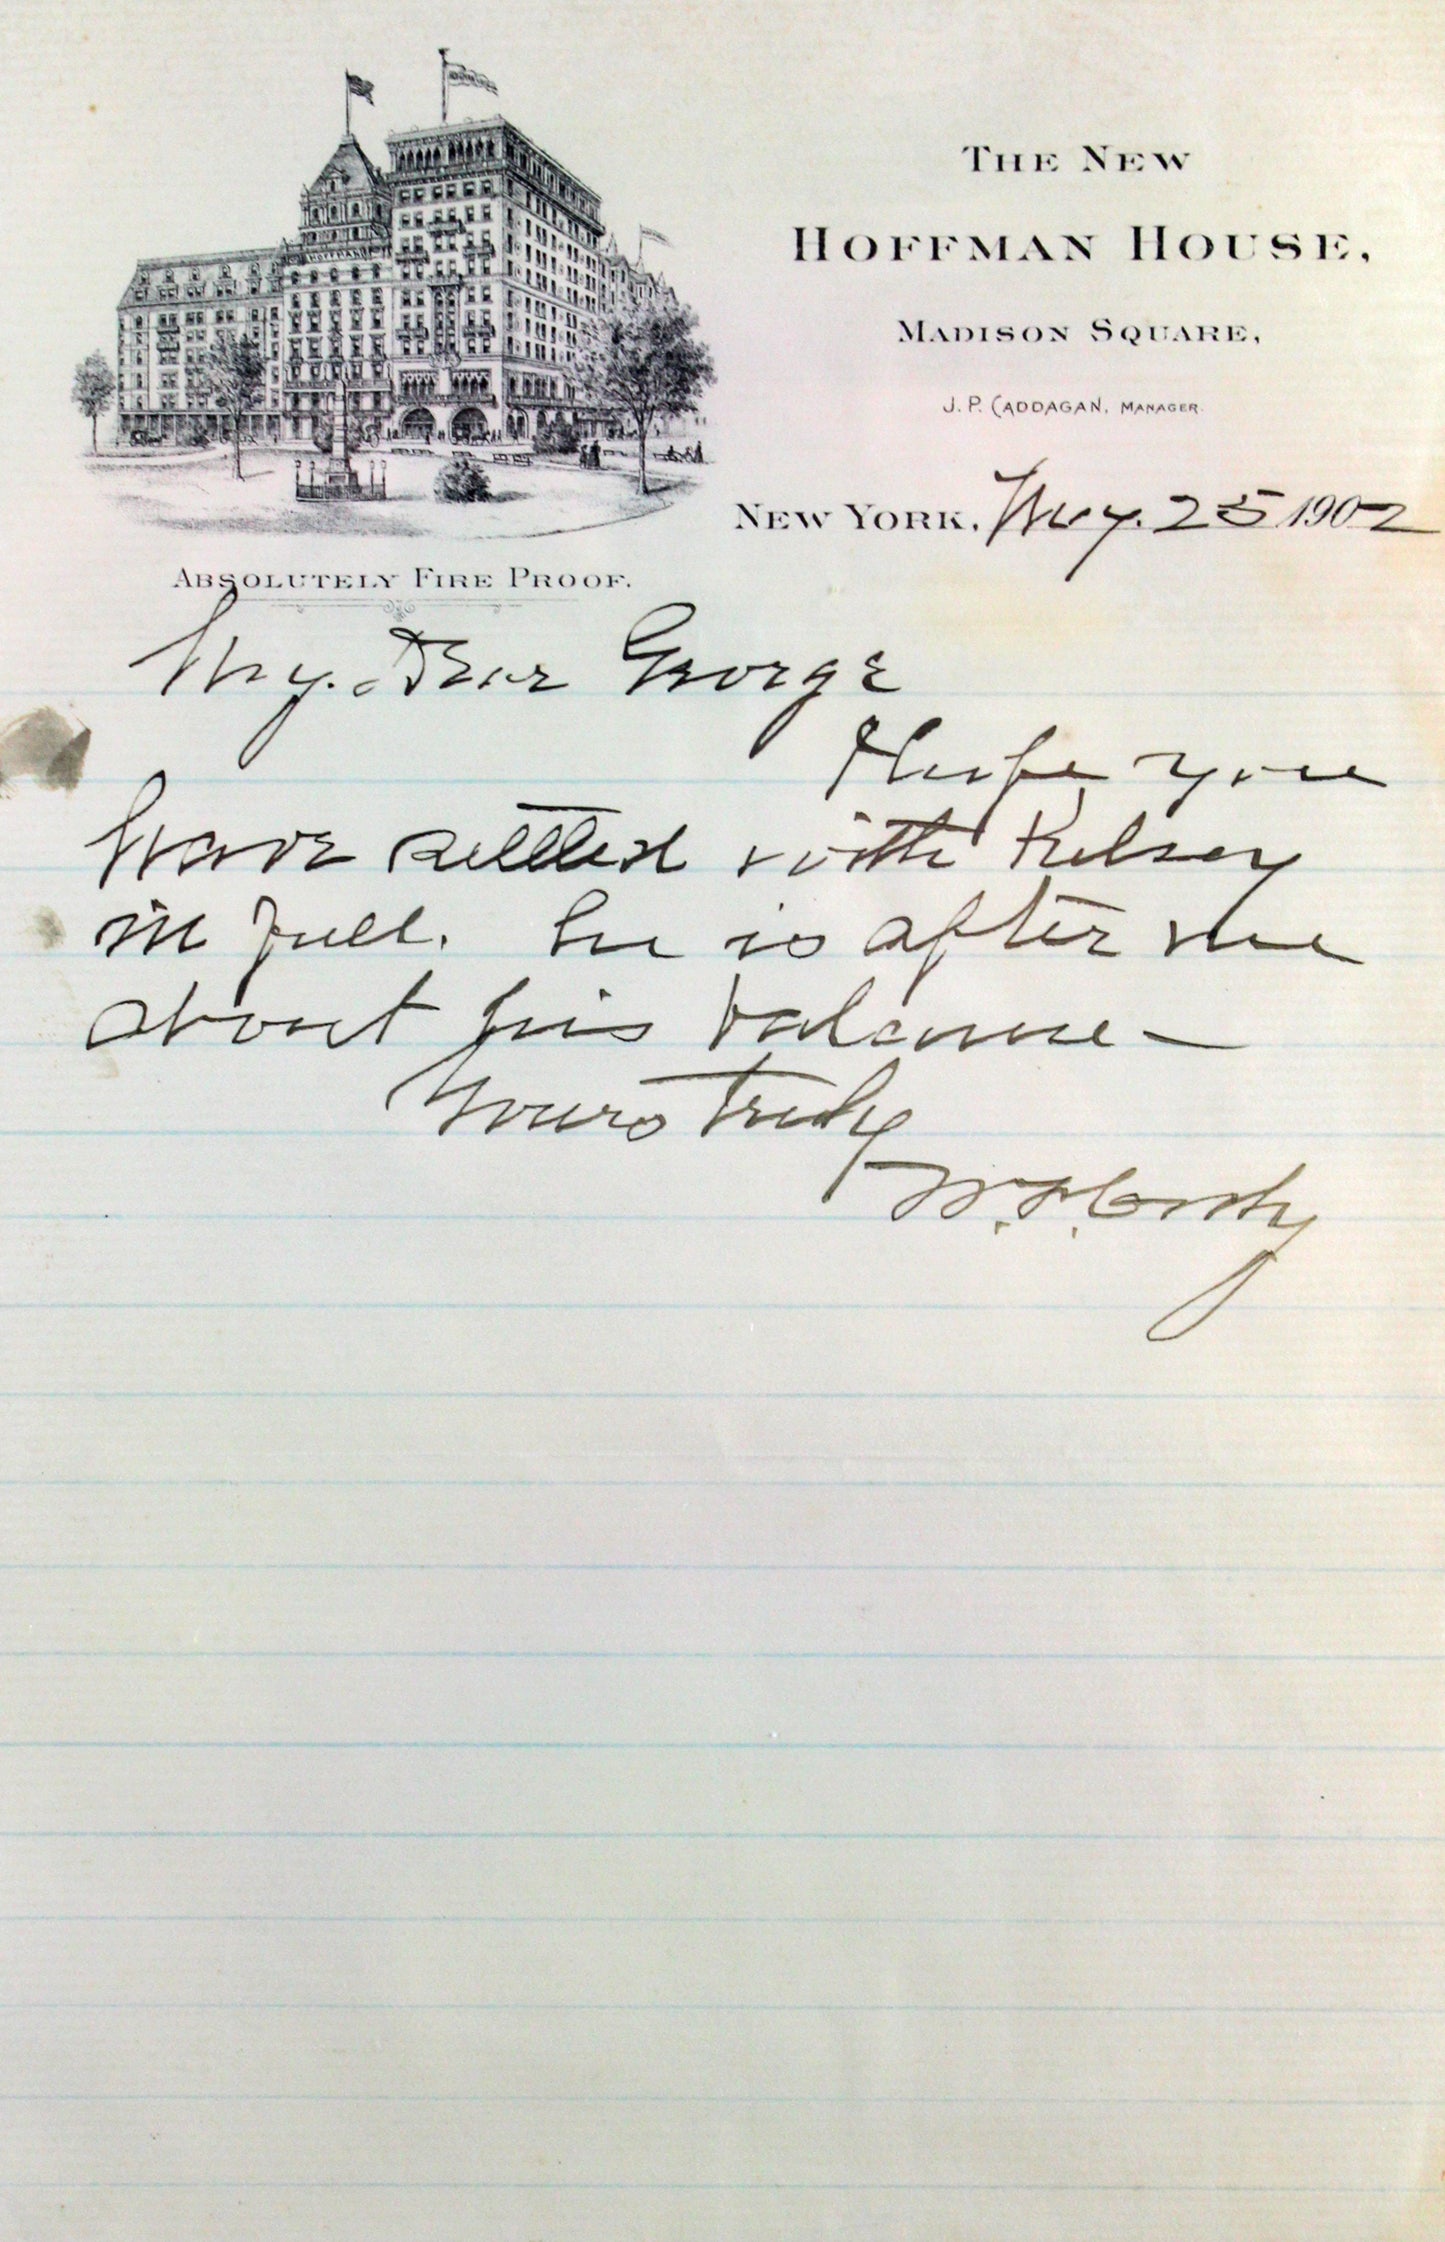 THE NEW
HOFFMAN HOUSE,
MADISON SQUARE,
J. P. CADDAGAN, MANAGER.
NEW YORK, May. 25 1902
ABSOLUTELY FIRE PROOF.
HOFFMAN
My. Dear George
Hope you
have settled with Kelsey
in full. he is after me
about his balance—
Yours truly
W. F. Cody